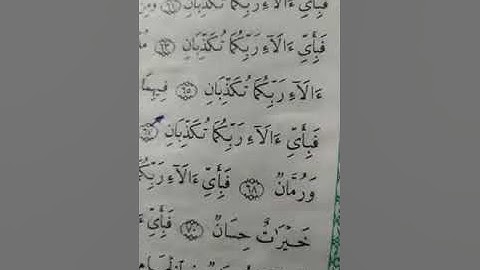 فَبِأَيِّ ءَالَآءِ رَبِّكُمَا تُكَذِّبَانِ ٦١ وَمِن
فَبِأَيِّ ءَالَآءِ رَبِّكُمَا تُكَذِّبَانِ ٦٣
ءَالَآءِ رَبِّكُمَا تُكَذِّبَانِ ٦٥ فِيهِمَا
فَبِأَيِّ ءَالَآءِ رَبِّكُمَا تُكَذِّبَانِ ٦٧
وَرُمَّانٌ ٦٨ فَبِأَيِّ ءَالَآءِ رَبِّكُمَا
خَيْرَاتٌ حِسَانٌ ٧٠ فَبِأَيِّ